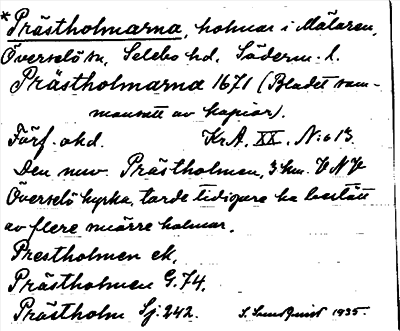 *Prästholmarna, holmar i Mälaren,
Överselö sn, Selebo hd, Söderm. l.
Prästholmarna 1671 (Bladet sam-
mansatt av kopior).
Förf. okd. KrA. XX. N:o 13.
Den nuv. Prästholmen, 3 km. VNV
Överselö kyrka, torde tidigare ha bestått
av flere smärre holmar.
Prestholmen ek.
Prästholmen G. 74.
Prästholm Sj. 242. S. Sundquist 1935.